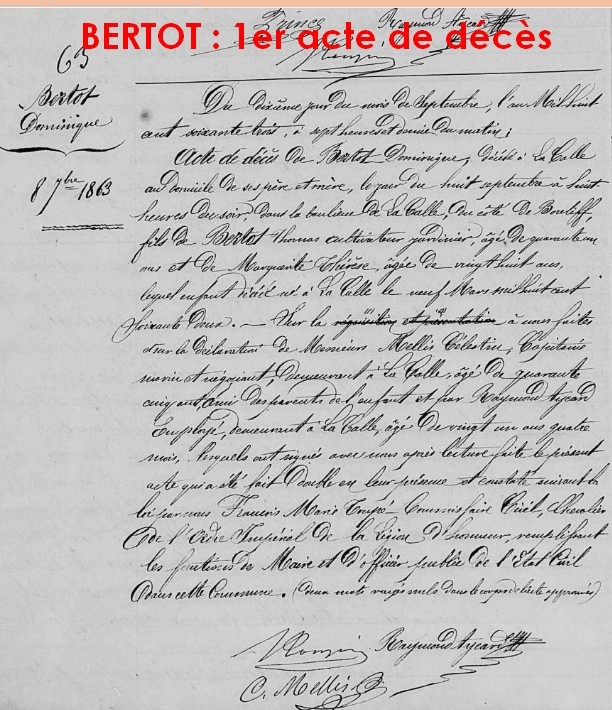 Prince Raymond Aycard
BERTOT : 1er acte de décès
63
Bertot
Dominique
8 7bre 1863
Du dixième jour du mois de Septembre, l'an Mil huit
cent soixante trois, à sept heures et demie du matin ;
Acte de décès de Bertot Dominique, décédé à La Calle
au domicile de ses père et mère, le jour du huit septembre à huit
heures du soir, dans la banlieue de La Calle, du côté de Bouliff,
fils de Bertot Thomas cultivateur jardinier, âgé de quarante un
ans et de Marguerite Thérèse, âgée de vingt huit ans,
lequel enfant décédé né à La Calle le neuf Mars mil huit cent
soixante deux. — Sur la réquisition et présentation à nous faites
et sur la déclaration de Messieurs Mellis Célestin, Capitaine
marin et négociant, demeurant à La Calle, âgé de quarante
cinq ans, ami des parents de l'enfant et par Raymond Aycard
Employé, demeurant à La Calle, âgé de vingt un ans quatre
mois, lesquels ont signés avec nous après lecture faite le présent
acte qui a été fait double en leur présence et constaté suivant la
loi par nous François Marie Commissaire Civil, Chevalier
de l'Ordre Impérial de la Légion d'honneur, remplissant
les fonctions de Maire et d'officier public de l'Etat Civil
dans cette Commune. (deux mots rayés nuls dans le corps de l'acte approuvés)
Raymond Aycard
C. Mellis